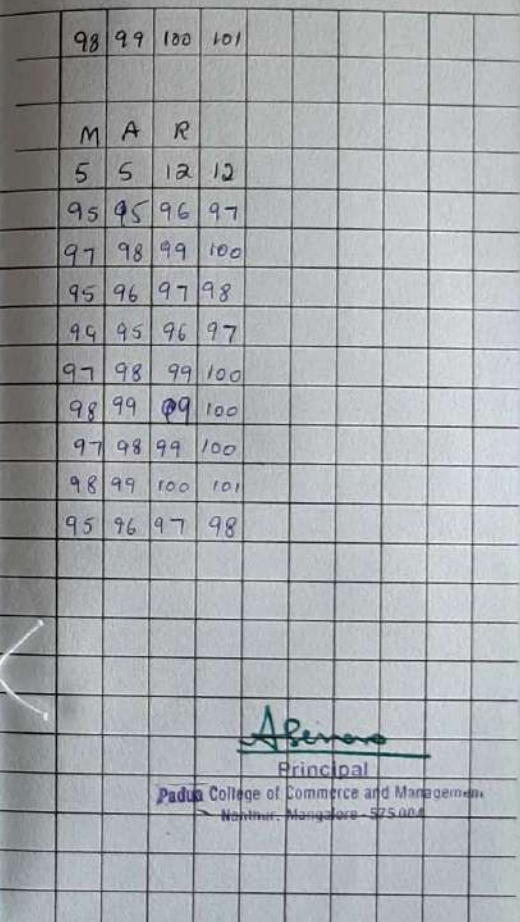 98 99 100 101
M A R
5 5 12 12
95 95 96 97
97 98 99 100
95 96 97 98
94 95 96 97
97 98 99 100
98 99 99 100
97 98 99 100
98 99 100 101
95 96 97 98
Principal
Padua College of Commerce and Management
Nanthur, Mangalore - 575 004